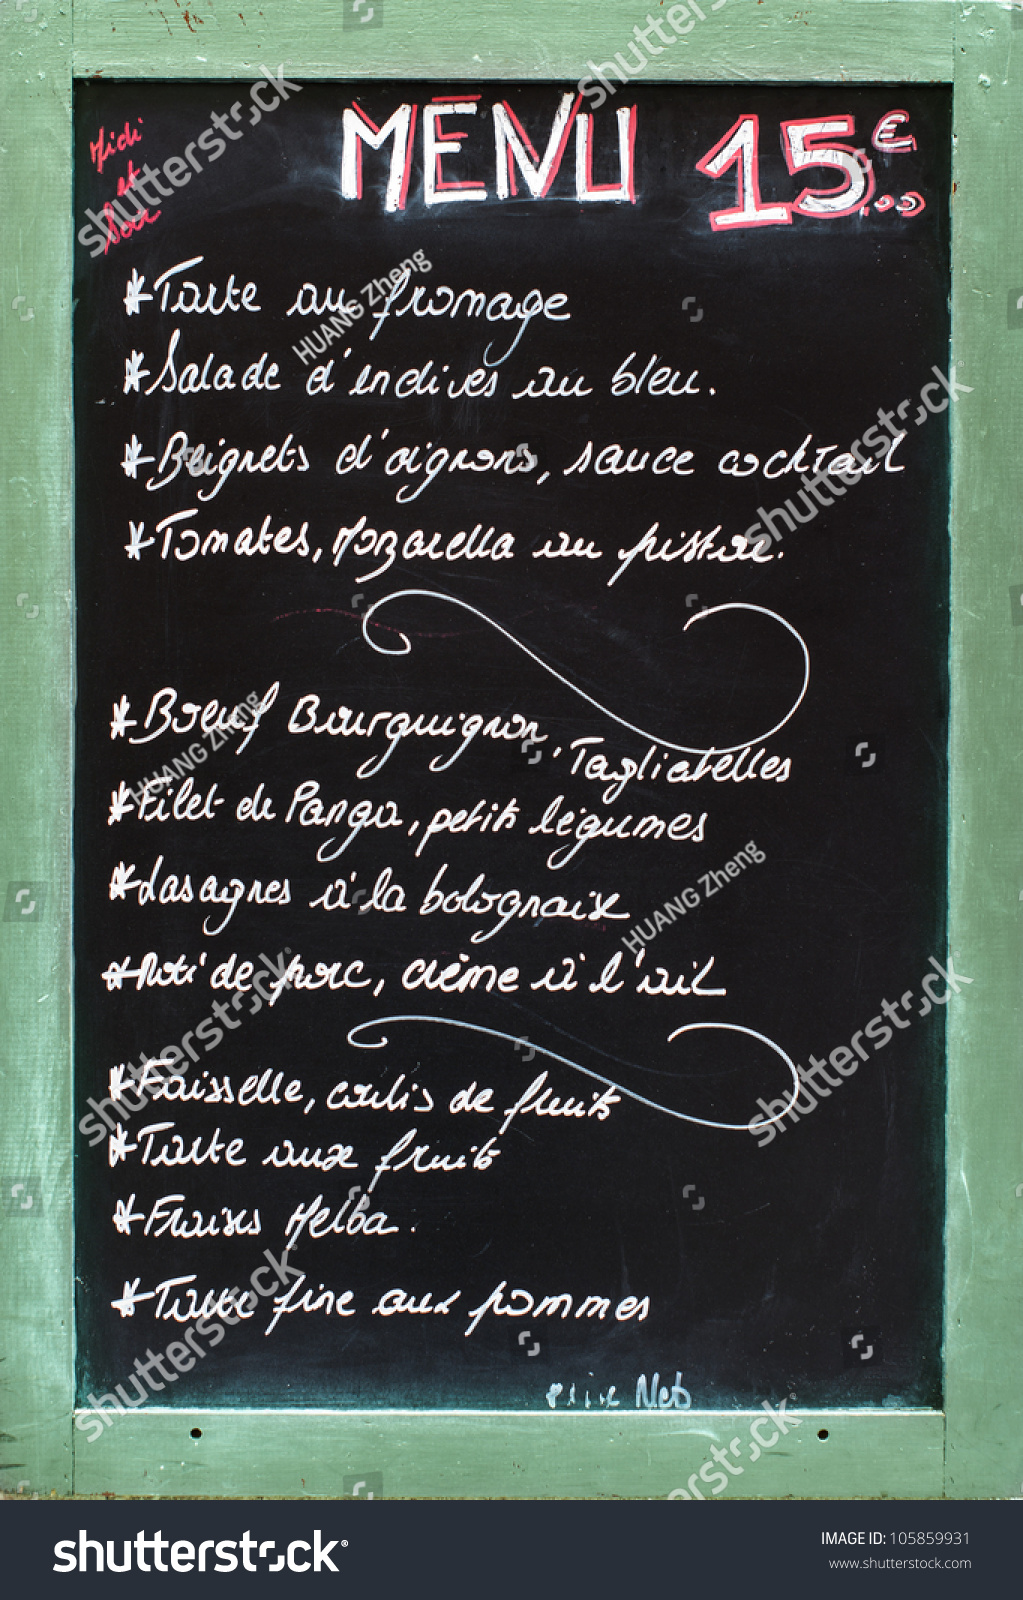 Midi
et
Soir
MENU 15€
*Tarte au fromage
*Salade d'endives au bleu.
*Beignets d'oignons, sauce cocktail
*Tomates, Mozarella au pistou.
*Boeuf Bourguignon, Tagliatelles
*Filet de Panga, petits légumes
*Lasagnes à la bolognaise
*Roti de porc, crème à l'ail
*Faisselle, coulis de fruits
*Tarte aux fruits
*Fraises Melba.
*Tarte fine aux pommes
prix Nets
shutterstock
HUANG Zheng
shutterstock
IMAGE ID: 105859931
www.shutterstock.com